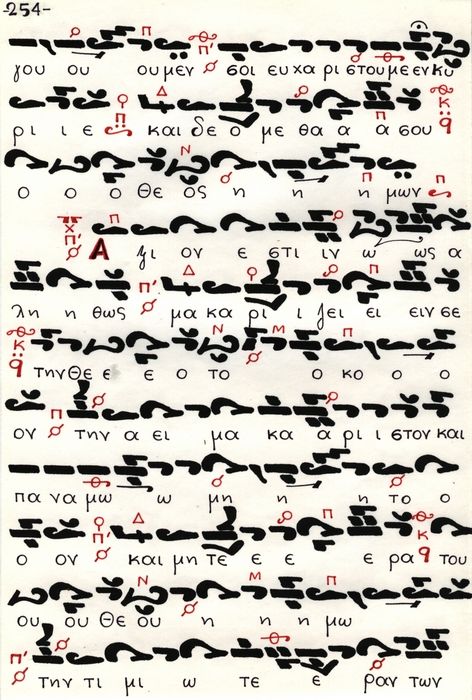 -254-
γου ου ου μεν σοι ευ χα ρι στου με εν κυ
ρι ι ε και δε ο με θα α α σου
ο ο ο Θε ος η η η μων
Α ξι ον ε στι ιν ω ως α
λη η θως μα κα ρι ι ζει ει ειν σε
την Θε ε ε ο το ο κο ο ο
ον την α ει μα κα α ρι ι στον και
πα να μω ω μη η η το ο
ο ον και μη τε ε ε ε ρα του
ου ου Θε ου η η η μω
την τι μι ω τε ε ραν των